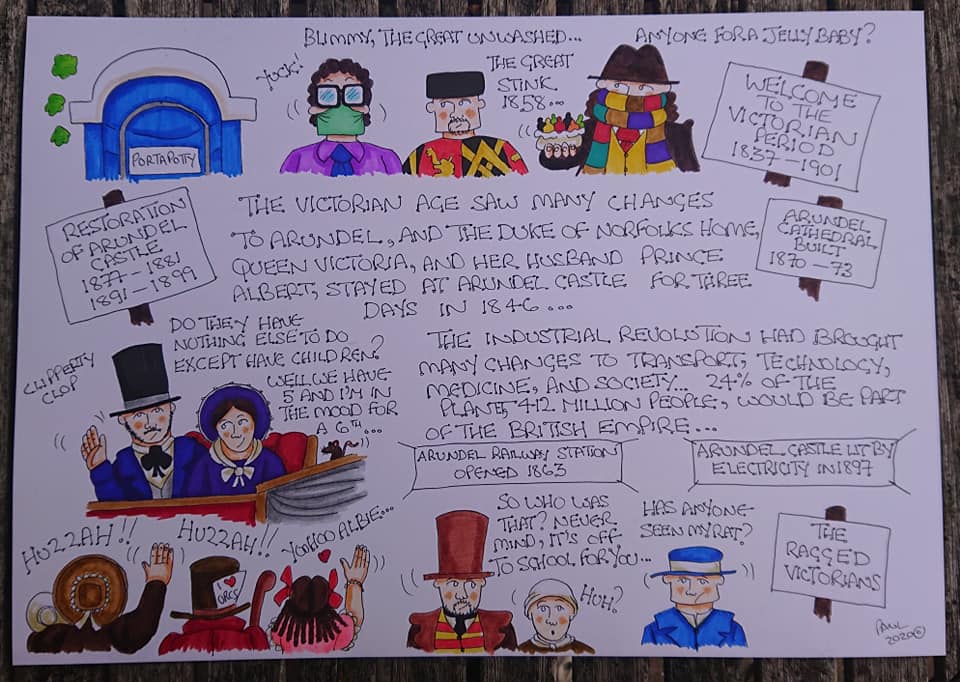 BLIMMY, THE GREAT UNWASHED...
ANYONE FOR A JELLY BABY?
YUCK!
THE GREAT
STINK
1858...
WELCOME
TO THE
VICTORIAN
PERIOD
1837-1901
PORTAPOTTY
RESTORATION
OF ARUNDEL
CASTLE
1877-1881
1891-1899
THE VICTORIAN AGE SAW MANY CHANGES
TO ARUNDEL, AND THE DUKE OF NORFOLKS HOME,
QUEEN VICTORIA, AND HER HUSBAND PRINCE
ALBERT, STAYED AT ARUNDEL CASTLE FOR THREE
DAYS IN 1846...
ARUNDEL
CATHEDRAL
BUILT
1870-73
CLIPPERTY
CLOP
DO THEY HAVE
NOTHING ELSE TO DO
EXCEPT HAVE CHILDREN?
WELL WE HAVE
5 AND I'M IN
THE MOOD FOR
A 6TH...
THE INDUSTRIAL REVOLUTION HAD BROUGHT
MANY CHANGES TO TRANSPORT, TECHNOLOGY,
MEDICINE, AND SOCIETY... 24% OF THE
PLANET, 412 MILLION PEOPLE, WOULD BE PART
OF THE BRITISH EMPIRE...
ARUNDEL RAILWAY STATION
OPENED 1863
ARUNDEL CASTLE LIT BY
ELECTRICITY IN 1897
HUZZAH!!
HUZZAH!!
YOOHOO ALBIE...
I ♥
ORCS
SO WHO WAS
THAT? NEVER
MIND, IT'S OFF
TO SCHOOL FOR YOU...
HUH?
HAS ANYONE
SEEN MY RAT?
THE
RAGGED
VICTORIANS
PAUL
2020©